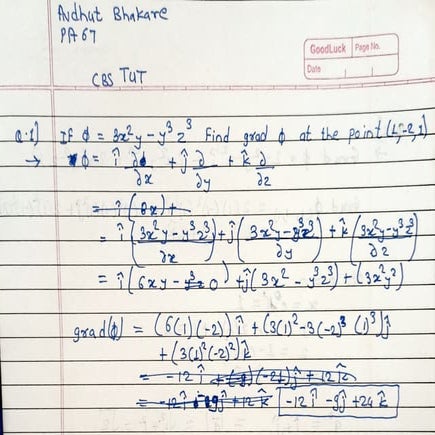 Avdhut Bhakare
PA 67
GoodLuck Page No.
Date
CBS TUT
Q.1] If ϕ = 3x²y - y³z³ Find grad ϕ at the point (1,-2,1)
→ ∇ϕ = î ∂ϕ/∂x + ĵ ∂/∂y + k̂ ∂/∂z
= î (6x) +
= î (3x²y - y³z³/∂x) + ĵ (3x²y - y³z³/∂y) + k̂ (3x²y - y³z³/∂z)
= î (6xy - 0) + ĵ (3x² - y²z³) + (3x²y²)
grad(ϕ) = (6(1)(-2)) î + (3(1)² - 3(-2)³ (1)³) ĵ
+ (3(1)²(-2)²) k̂
= -12 î + (-9)(-24) ĵ + 12 k̂
= -12 î - 9ĵ + 12 k̂ -12 î - 9ĵ + 24 k̂